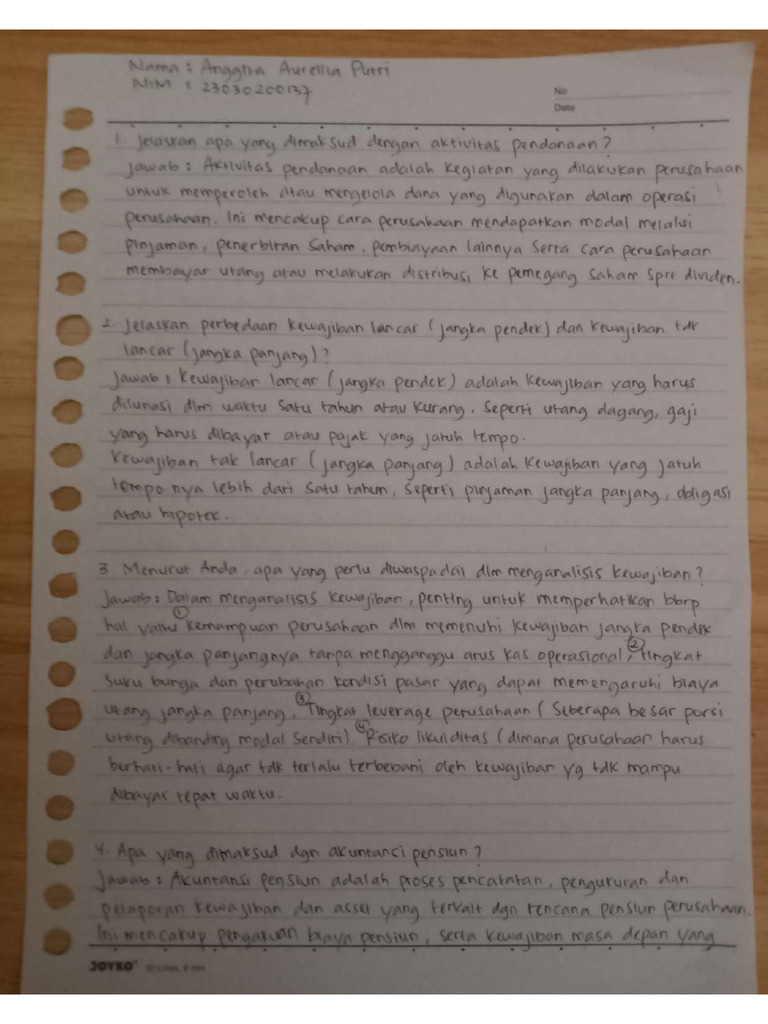 Nama : Anggtra Aurellia Putri
NIM : 23030200137
No
Date
1. Jelaskan apa yang dimaksud dengan aktivitas pendanaan?
Jawab : Aktivitas pendanaan adalah kegiatan yang dilakukan perusahaan
untuk memperoleh atau mengelola dana yang digunakan dalam operasi
perusahaan. Ini mencakup cara perusahaan mendapatkan modal melalui
pinjaman, penerbitan saham, pembiayaan lainnya serta cara perusahaan
membayar utang atau melakukan distribusi ke pemegang saham sprt dividen.
2. Jelaskan perbedaan kewajiban lancar (jangka pendek) dan kewajiban tdk
lancar (jangka panjang)?
Jawab : Kewajiban lancar (jangka pendek) adalah kewajiban yang harus
dilunasi dlm waktu satu tahun atau kurang. Seperti utang dagang, gaji
yang harus dibayar atau pajak yang jatuh tempo.
Kewajiban tak lancar (jangka panjang) adalah kewajiban yang jatuh
tempo nya lebih dari satu tahun, seperti pinjaman jangka panjang, obligasi
atau hipotek.
3. Menurut Anda, apa yang perlu diwaspadai dlm menganalisis kewajiban?
Jawab : Dalam menganalisis kewajiban, penting untuk memperhatikan bbrp
hal yaitu ① kemampuan perusahaan dlm memenuhi kewajiban jangka pendek
dan jangka panjangnya tanpa mengganggu arus kas operasional, ② Tingkat
suku bunga dan perubahan kondisi pasar yang dapat memengaruhi biaya
utang jangka panjang, ③ Tingkat leverage perusahaan (Seberapa besar porsi
utang dibanding modal sendiri) ④ Risiko likuiditas (dimana perusahaan harus
berhati-hati agar tdk terlalu terbebani oleh kewajiban yg tdk mampu
dibayar tepat waktu.
4. Apa yang dimaksud dgn akuntanci pensiun?
Jawab : Akuntansi pensiun adalah proses pencatatan, pengukuran dan
pelaporan kewajiban dan asset yang terkait dgn rencana pensiun perusahaan.
Ini mencakup biaya pensiun, serta kewajiban masa depan yang
JOYKO